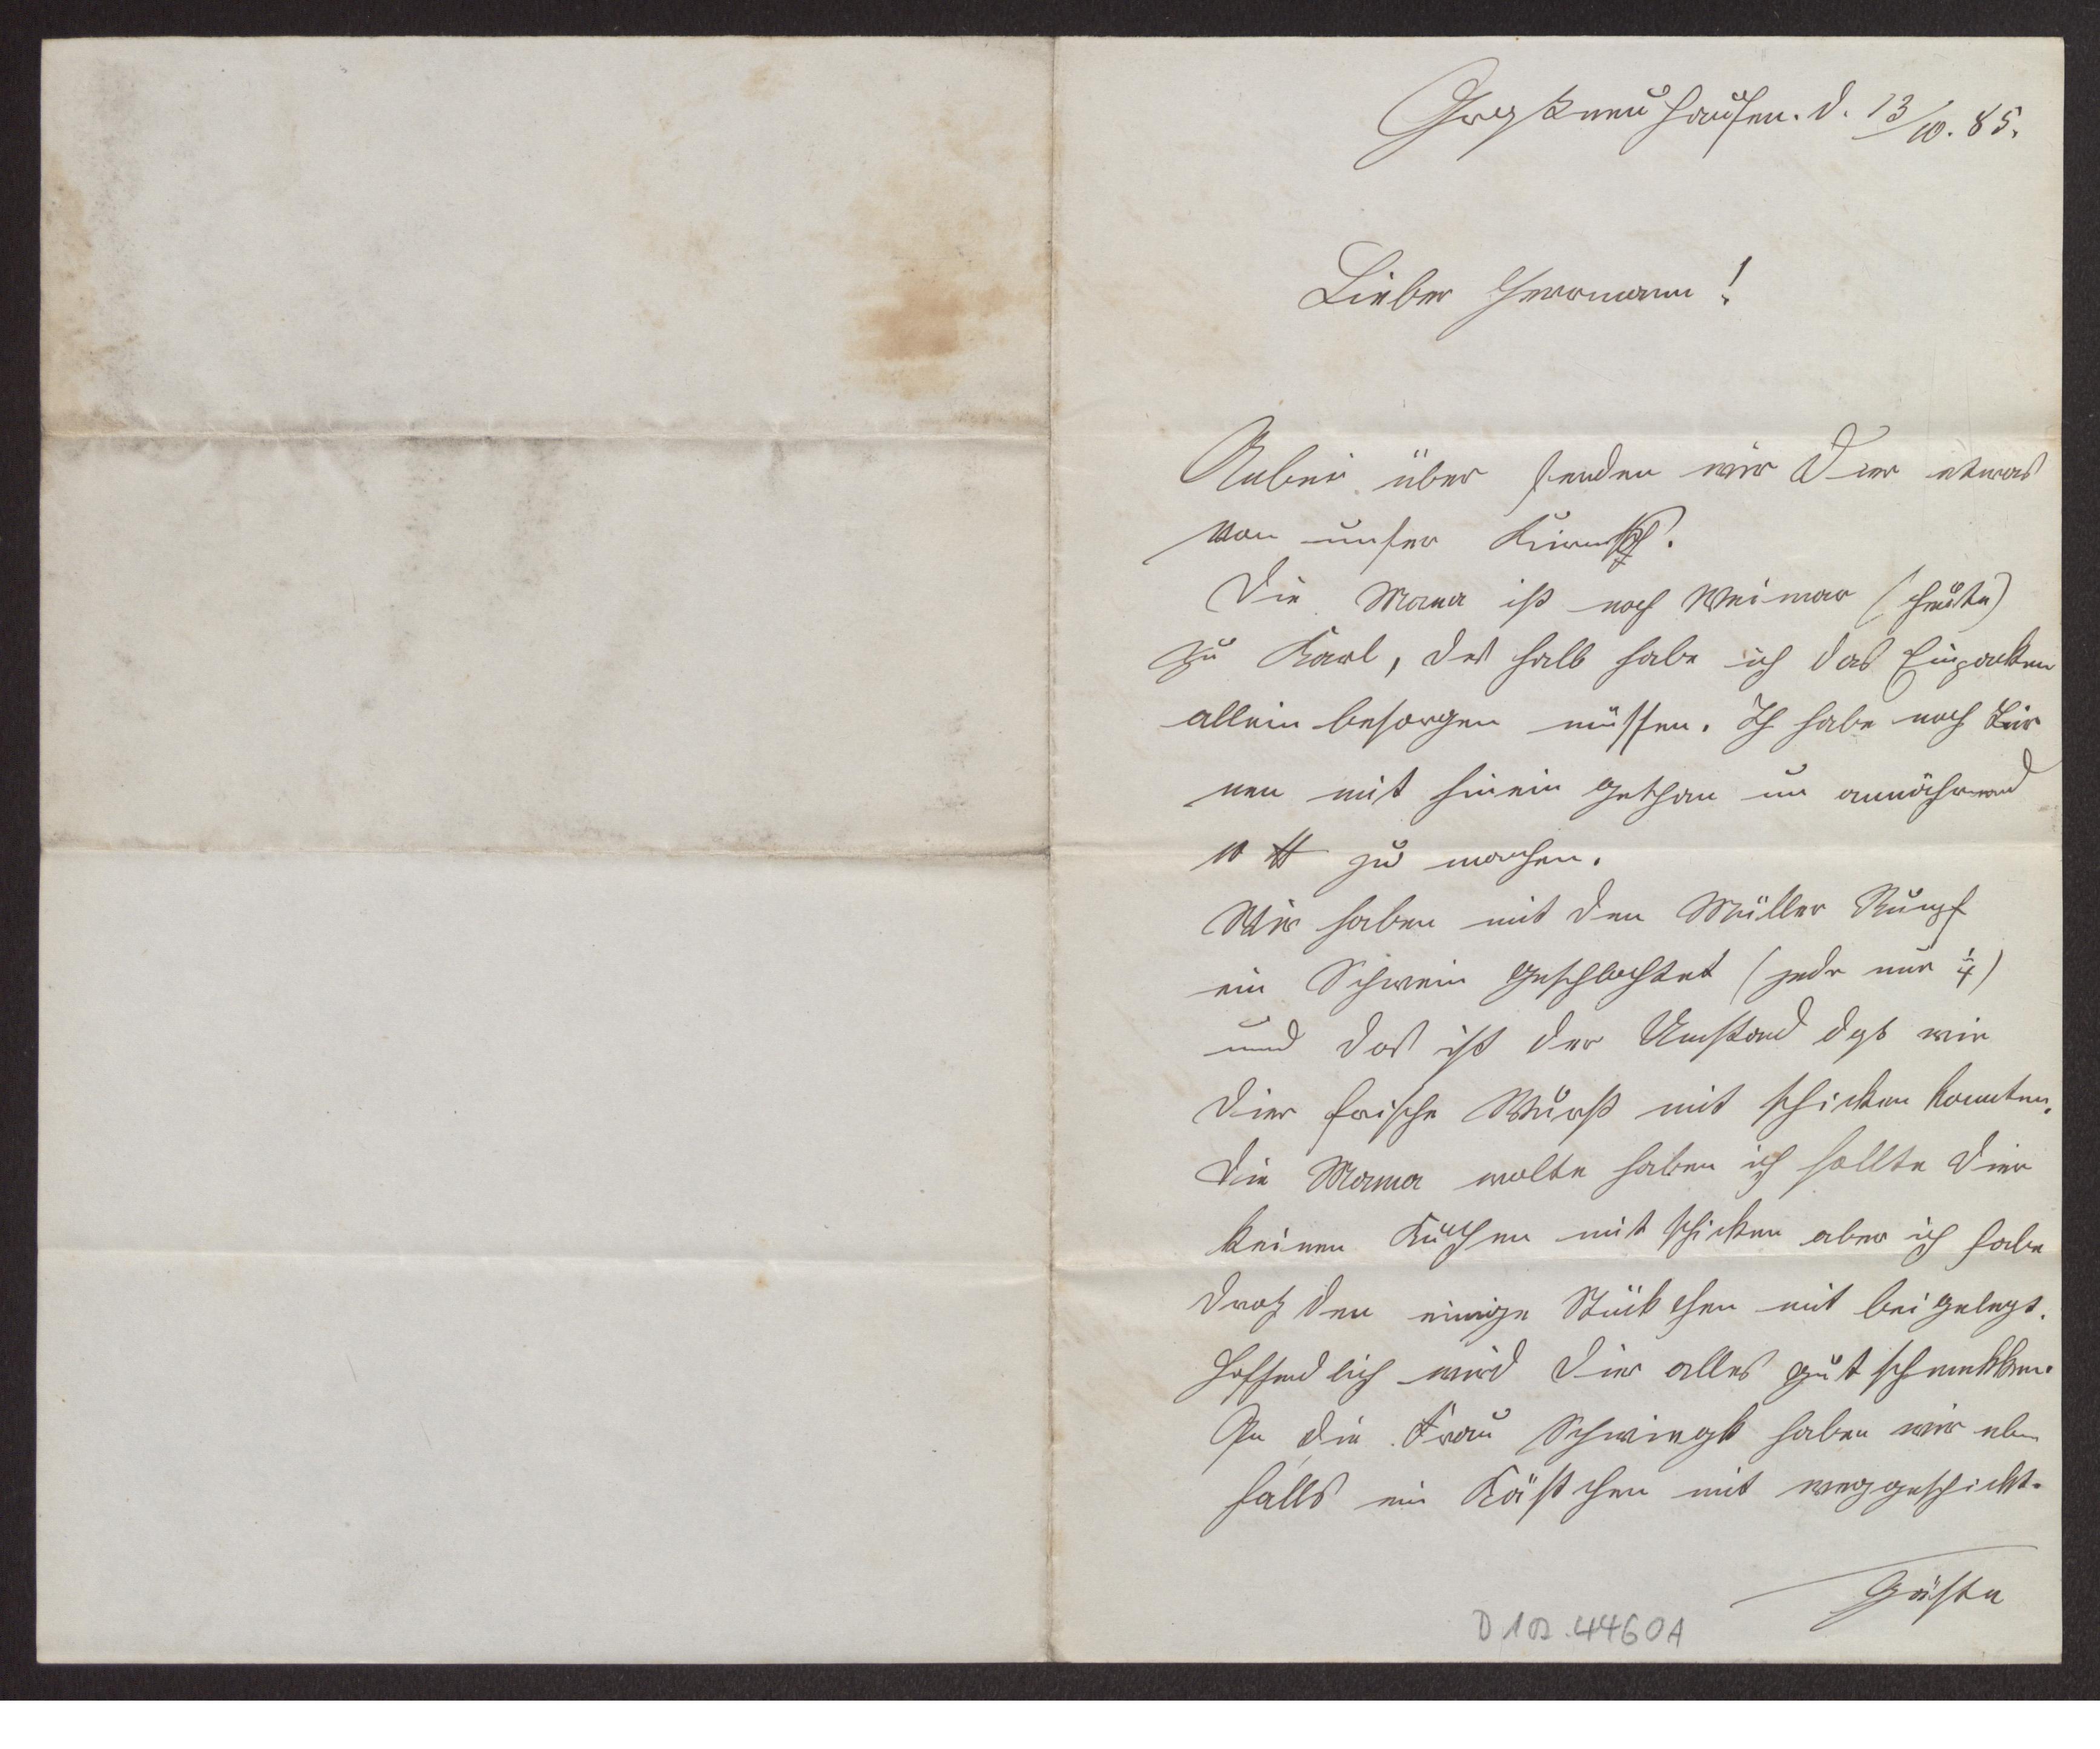 Orzkneuhausen. d. 13/10. 85.
Lieber Herrmann!
Anbei über senden wir Dier etwas
von unser Kirmsß.
Die Mama ist nach Weimar (heute)
zu Karl, des halb habe ich das Einpacken
allein besorgen müssen. Ich habe noch Bir
nen mit hinein gethan um annähernd
10 ℔ zu machen.
Wir haben mit den Müller Rumpf
ein Schwein geschlachtet (jeder nur ¼)
und das ist der Umstand das wir
Dier frische Wurst mit schicken konnten.
Die Mama wolte haben ich sollte Dier
keinen Kuchen mit schicken aber ich habe
drotz den einige Stükchen mit bei gelegt.
Hoffendlich wird Dier alles gut schmekken.
An die Frau haben wir eben
falls ein Kästchen mit weggeschickt.
Gäste
D 102.4460A